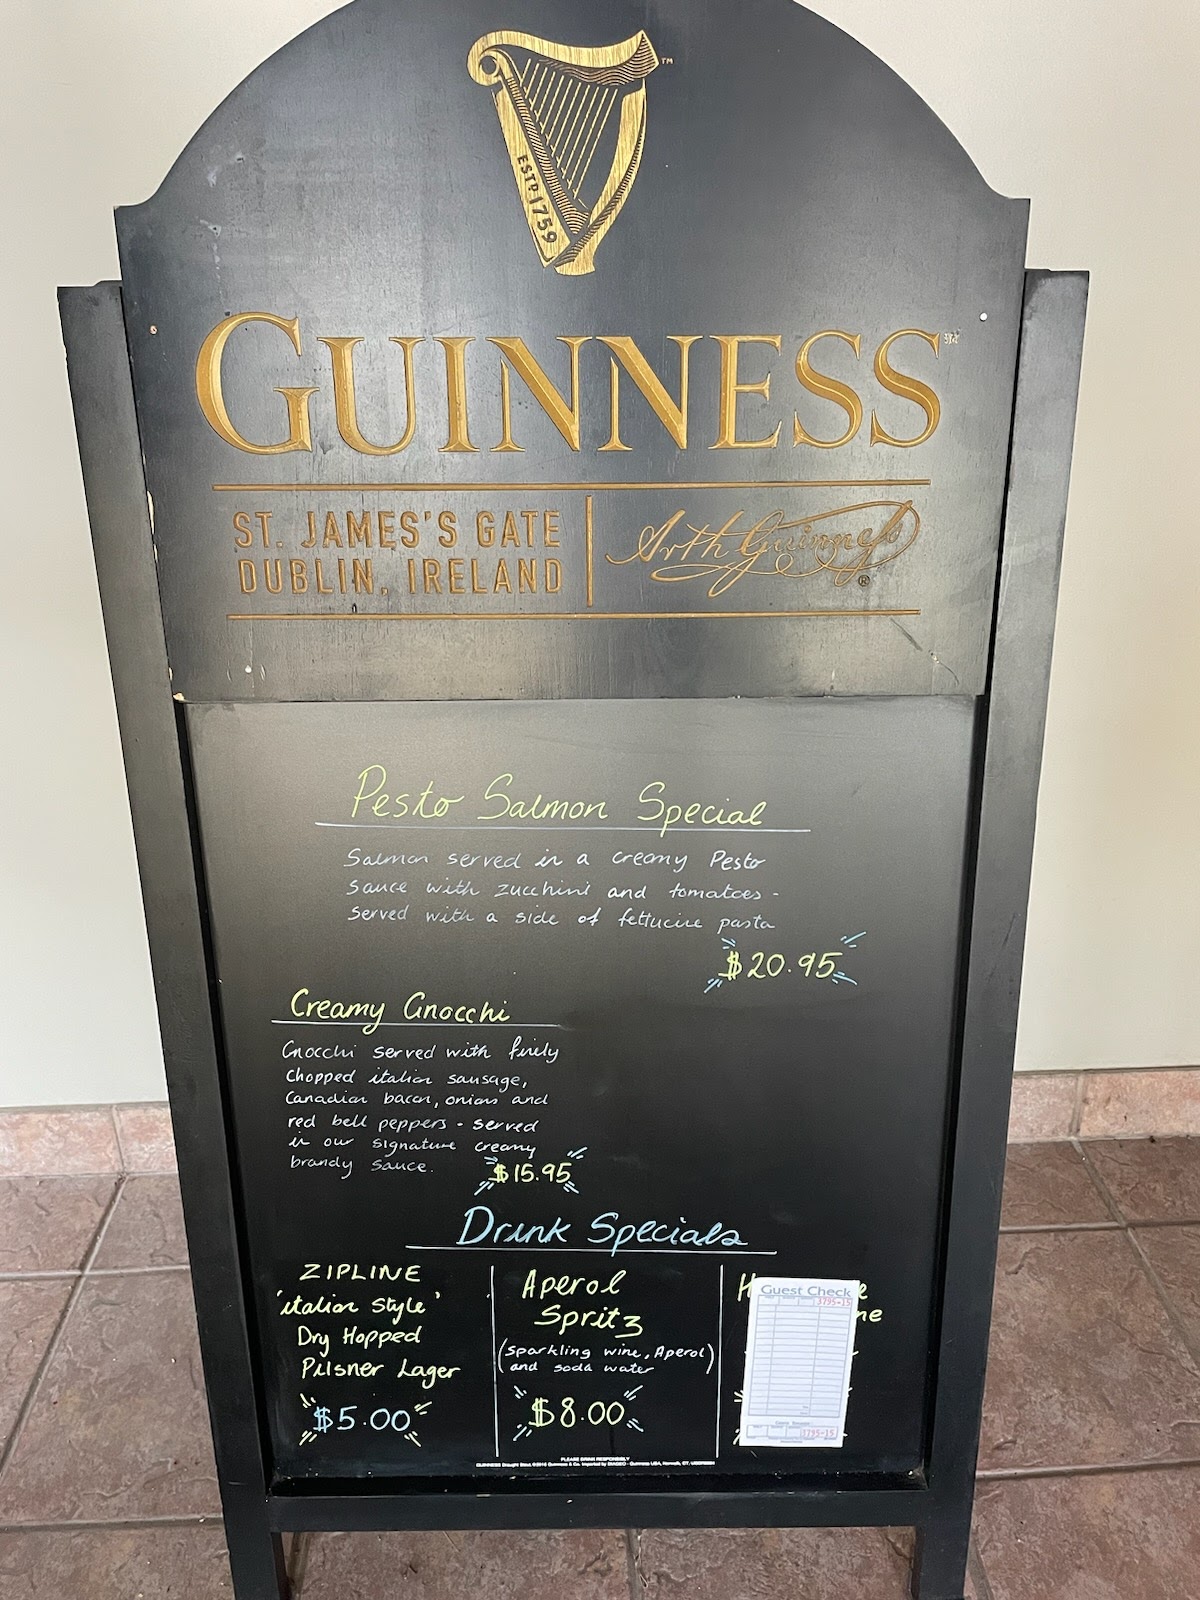 ESTD. 1759
™
GUINNESS™
ST. JAMES'S GATE
DUBLIN, IRELAND
Arth Guinness
®
Pesto Salmon Special
Salmon served in a creamy Pesto
sauce with zucchini and tomatoes -
served with a side of fettucine pasta
$20.95
Creamy Gnocchi
Gnocchi served with finely
chopped italian sausage,
Canadian bacon, onions and
red bell peppers - served
in our signature creamy
brandy sauce.
$15.95
Drink Specials
ZIPLINE
'italian style'
Dry Hopped
Pilsner Lager
$5.00
Aperol
Spritz
(sparkling wine, Aperol)
and soda water
$8.00
Guest Check
3795-15
3795-15
PLEASE DRINK RESPONSIBLY